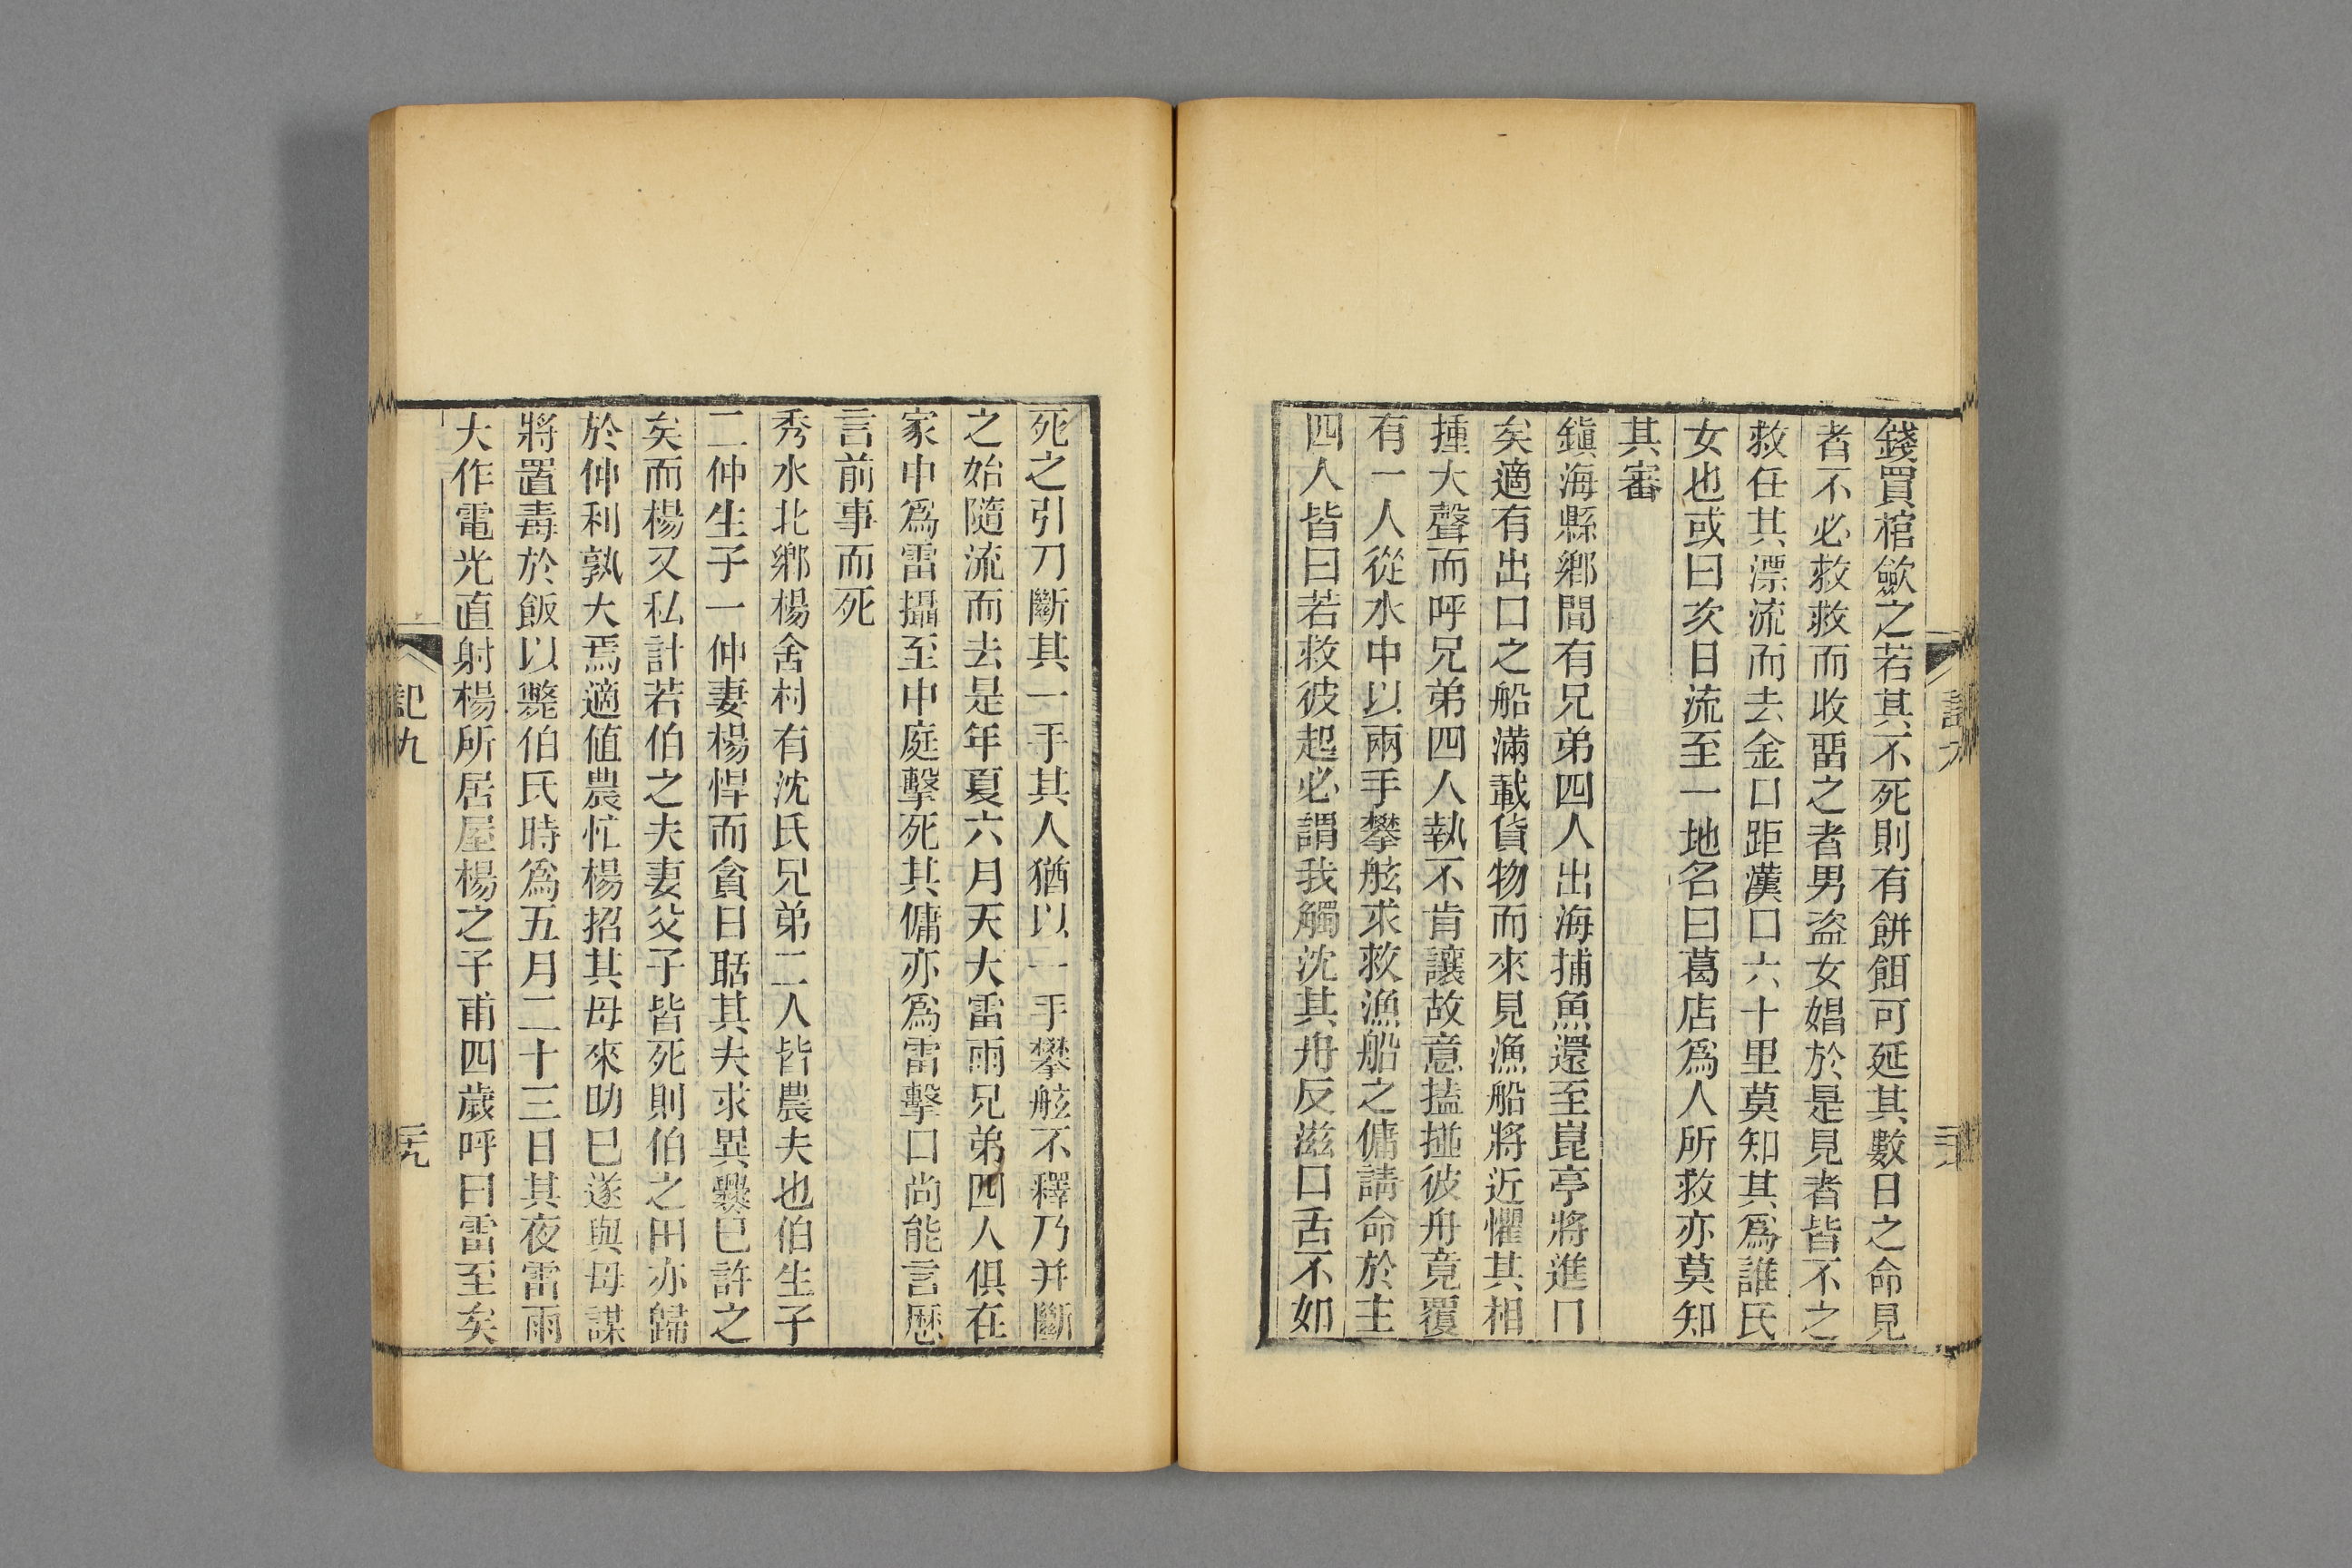 錢買棺斂之若其不死則有餅餌可延其數日之命見
者不必救救而收畱之者男盜女娼於是見者皆不之
救任其漂流而去金口距漢口六十里莫知其爲誰氏
女也或曰次日流至一地名曰葛店爲人所救亦莫知
其審
鎭海縣鄕間有兄弟四人出海捕魚還至崑亭將進口
矣適有出口之船滿載貨物而來見漁船將近懼其相
揰大聲而呼兄弟四人執不肯讓故意搕掽彼舟竟覆
有一人從水中以兩手攀舷求救漁船之傭請命於主
四人皆曰若救彼起必謂我觸沈其舟反滋口舌不如
死之引刀斷其一手其人猶以一手攀舷不釋乃并斷
之始隨流而去是年夏六月天大雷雨兄弟四人俱在
家中爲雷攝至中庭擊死其傭亦爲雷擊口尚能言歷
言前事而死
秀水北鄕楊舍村有沈氏兄弟二人皆農夫也伯生子
二仲生子一仲妻楊悍而貪日聒其夫求異爨已許之
矣而楊又私計若伯之夫妻父子皆死則伯之田亦歸
於仲利孰大焉適値農忙楊招其母來助已遂與母謀
將置毒於飯以斃伯氏時爲五月二十三日其夜雷雨
大作電光直射楊所居屋楊之子甫四歲呼曰雷至矣
記九